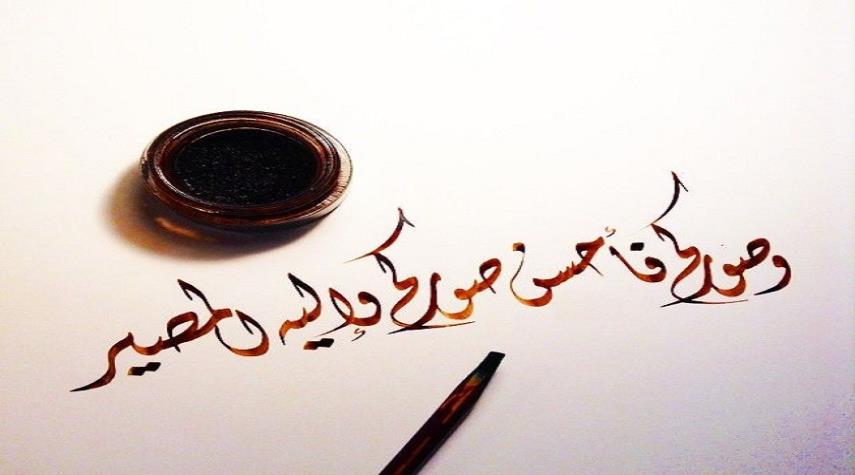 وصوركم فأحسن صوركم وإليه المصير